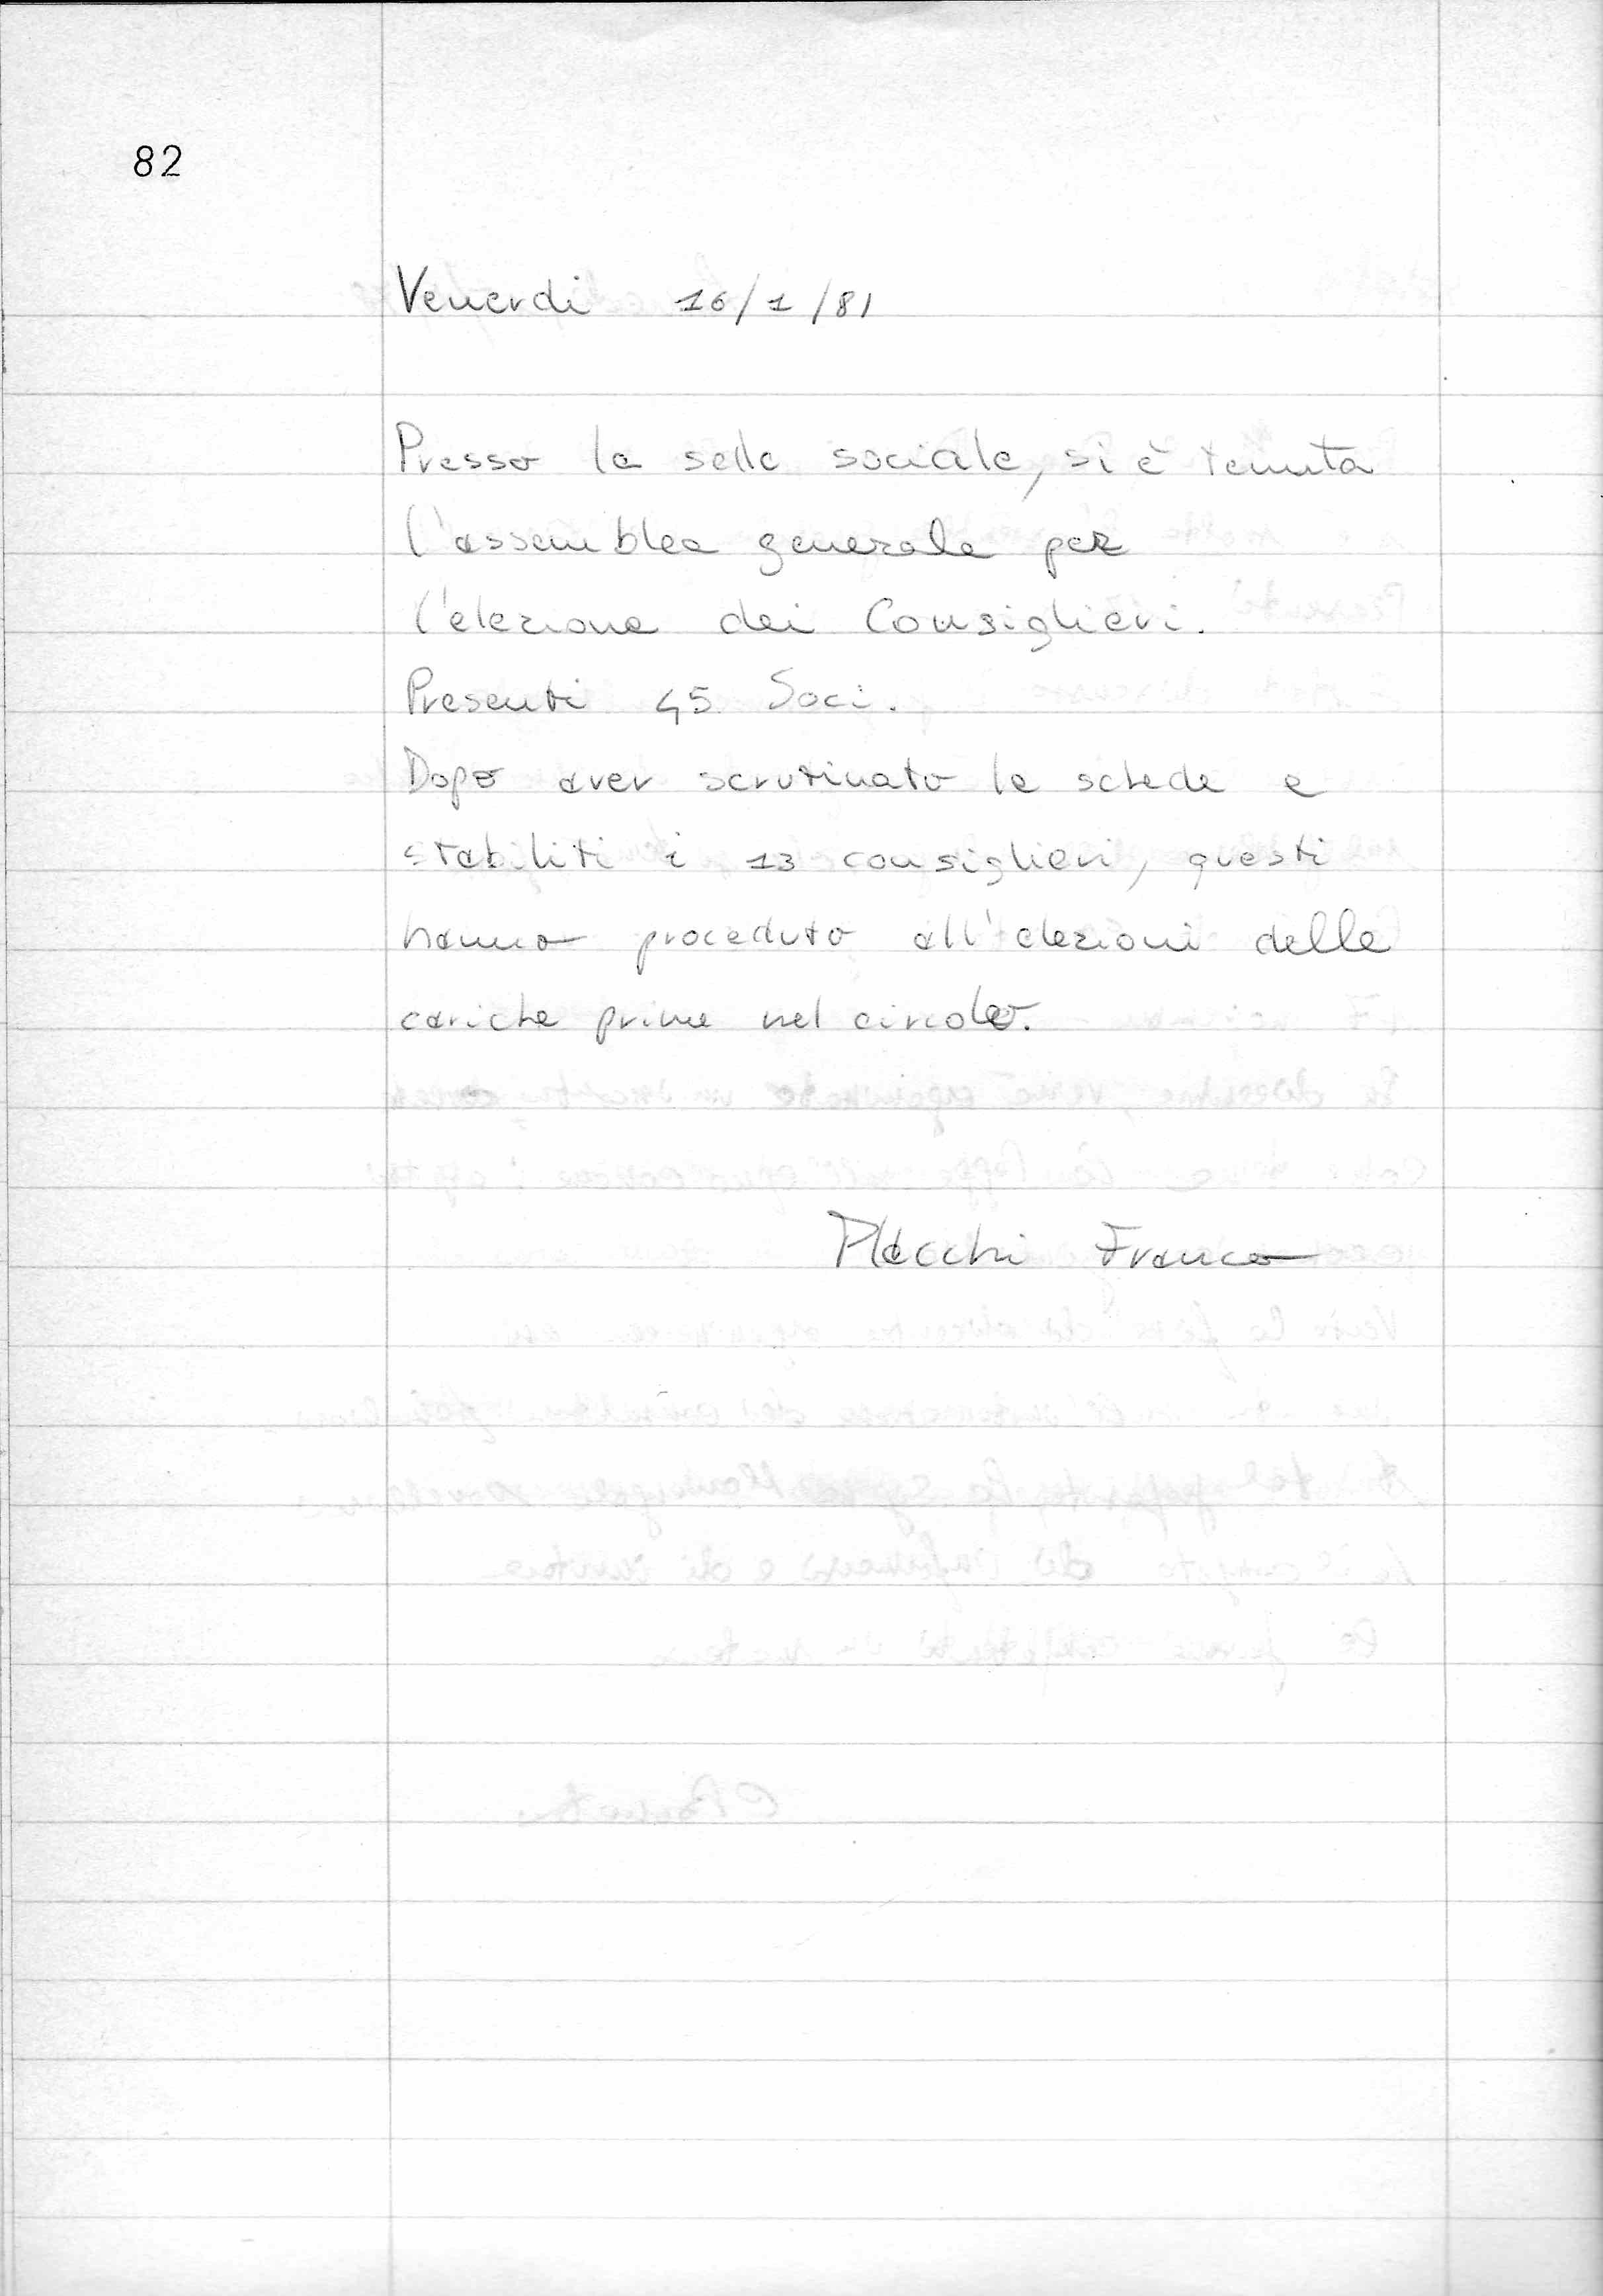 82
Venerdi 16/1/81
Presso la sede sociale, si è tenuta
l'assemblea generale per
l'elezione dei Consiglieri.
Presenti 45 Soci.
Dopo aver scrutinato le schede e
stabiliti i 13 consiglieri, questi
hanno proceduto all'elezioni delle
cariche prime nel circolo.
Placchi Franco